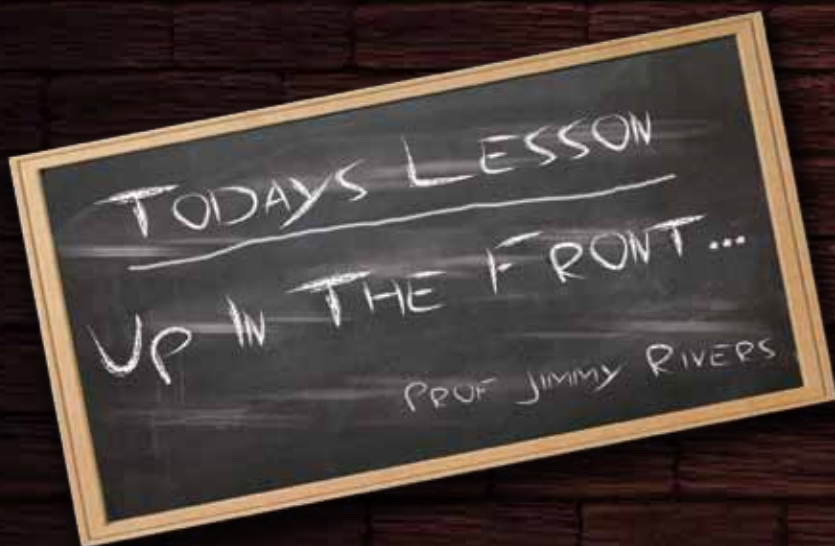 TODAYS LESSON
UP IN THE FRONT...
PROF JIMMY RIVERS